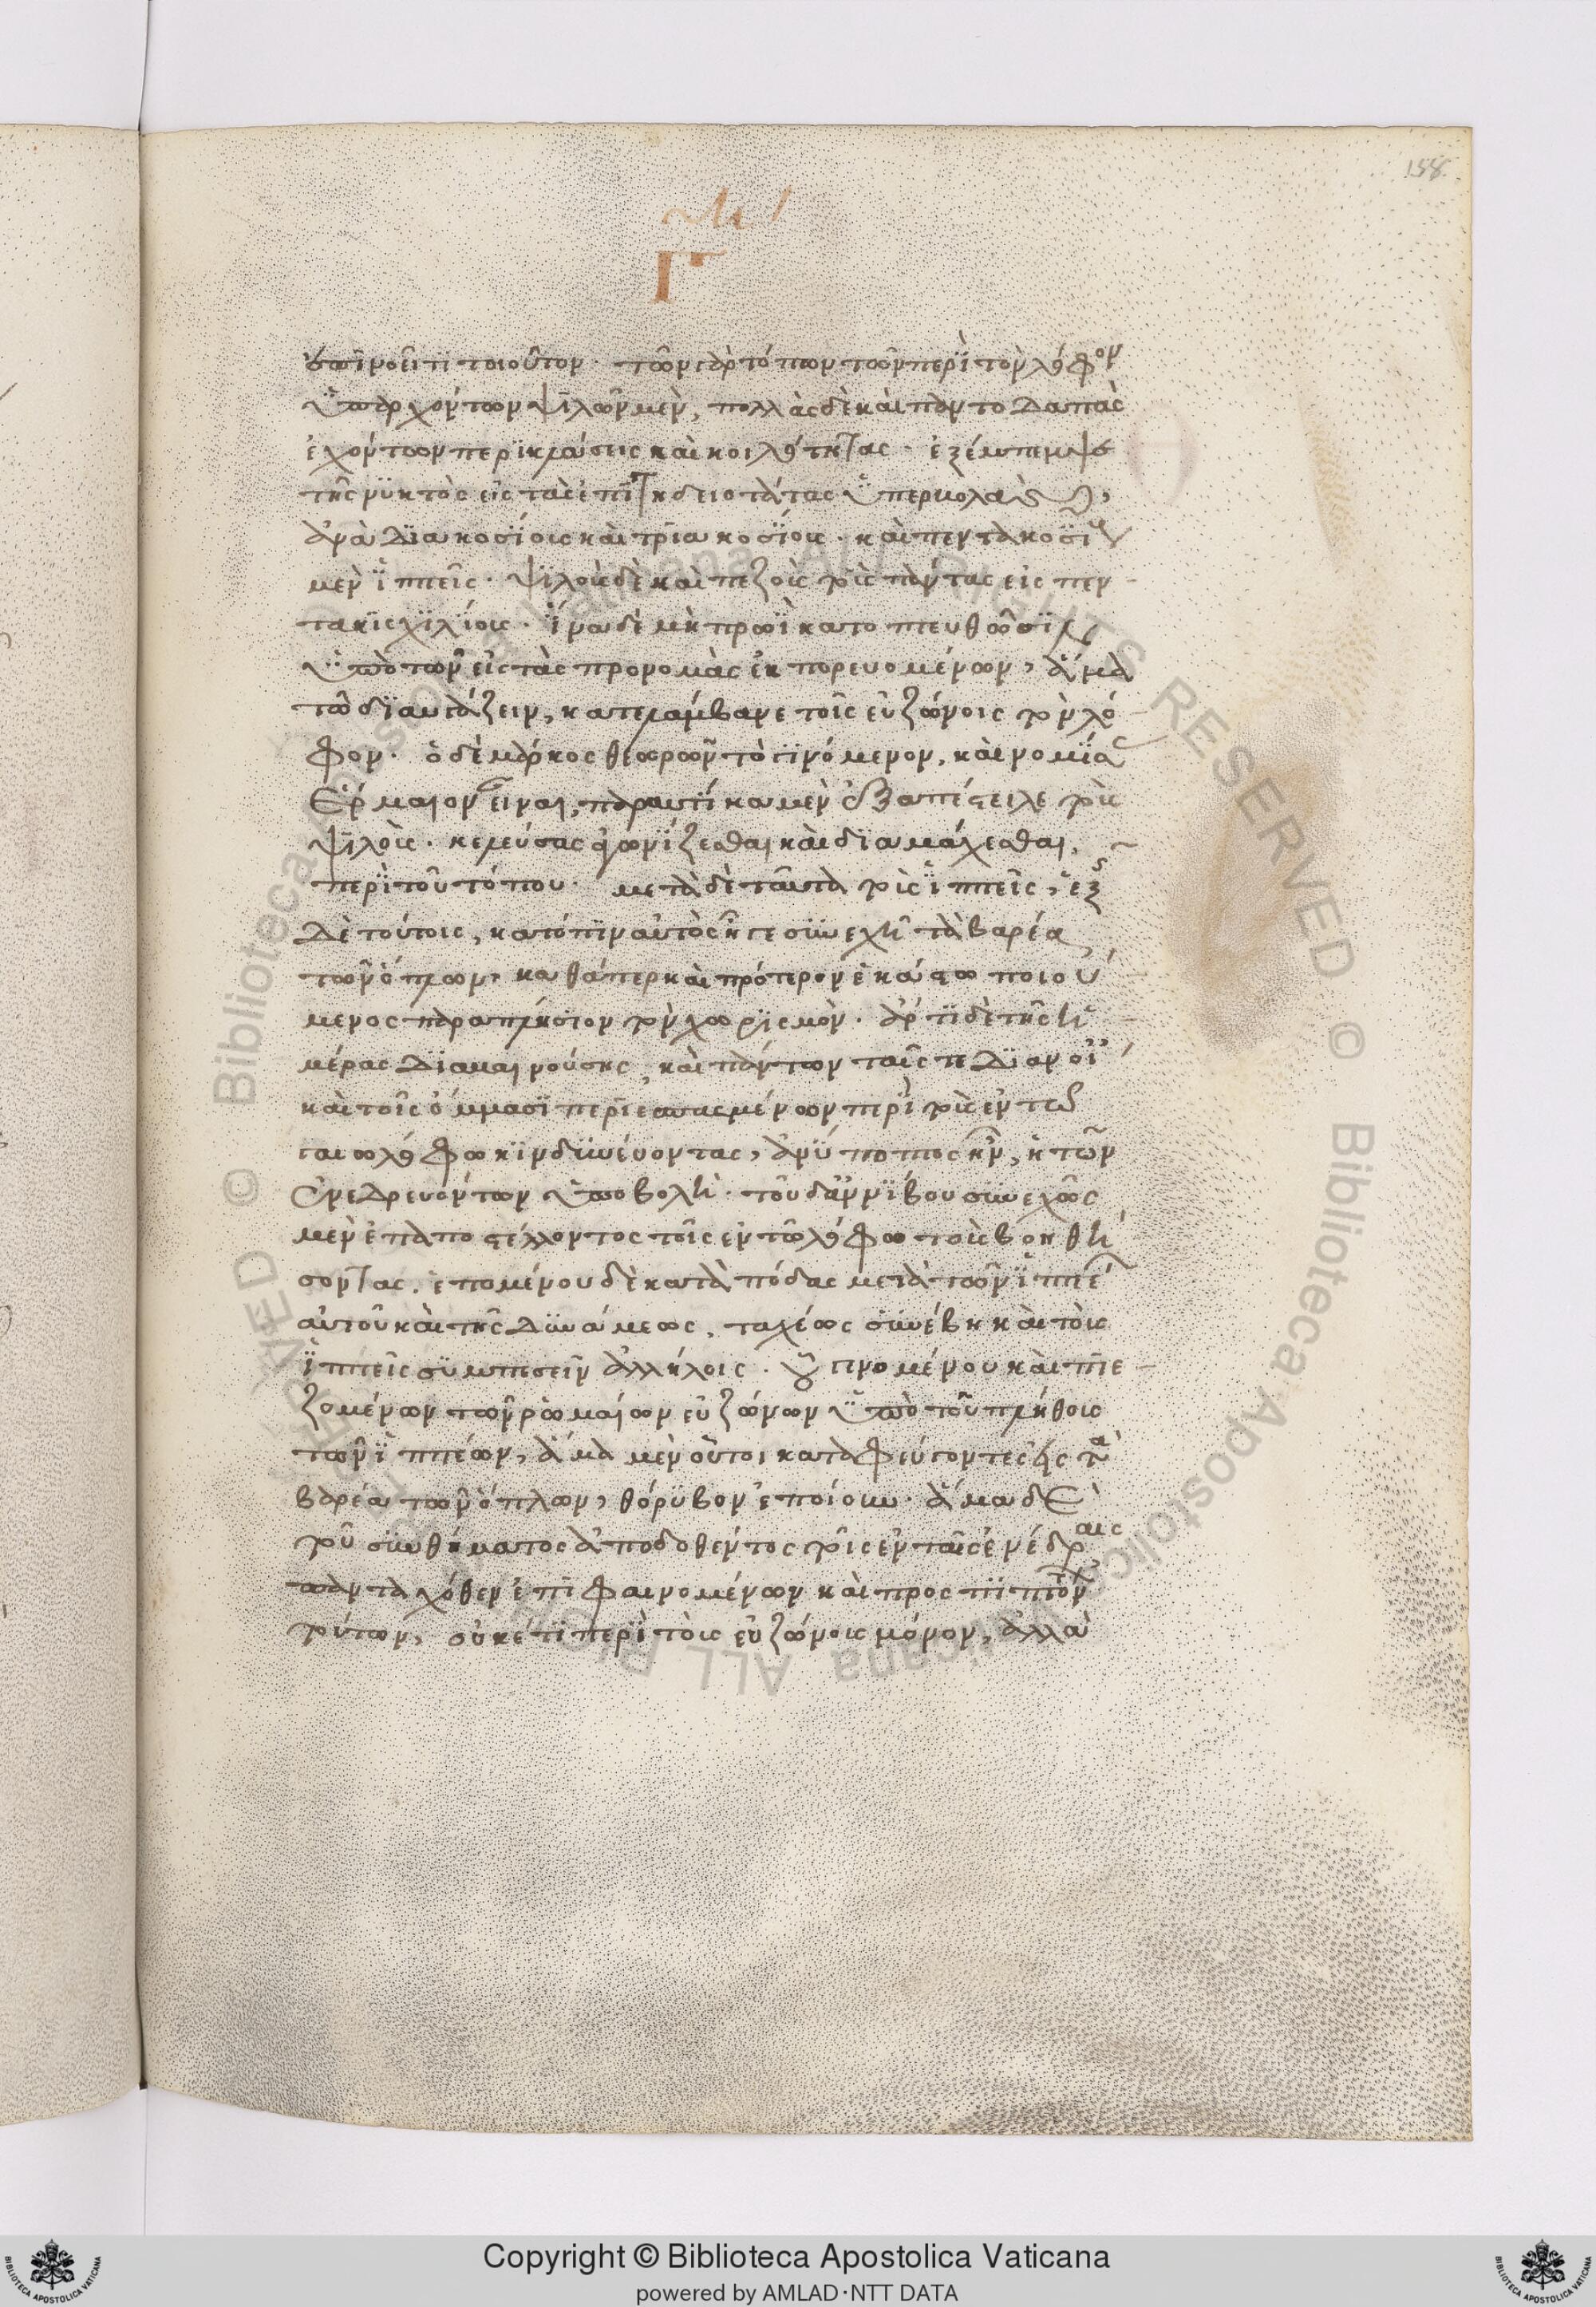 158
Γ
ἐπινοεῖ τι τοιοῦτον· τῶν γὰρ τόπων τῶν περὶ τὸν λόφον
ὑπαρχόντων ψιλῶν μὲν, πολλὰς δὲ καὶ παντοδαπὰς
ἐχόντων περικλάσεις καὶ κοιλότητας· ἐξέπεμψε
τῆς νυκτὸς εἰς τὰς ἐπιτηδειοτάτας ὑπερβολὰς
ἀνὰ διακοσίους καὶ τριακοσίους· καὶ πεντακοσίους
μὲν ἱππεῖς· ψιλοὺς δὲ καὶ πεζοὺς τοὺς πάντας εἰς πεν
τακισχιλίους· ἵνα δὲ μὴ πρωῒ κατοπτευθῶσιν
ὑπὸ τῶν εἰς τὰς προνομὰς ἐκπορευομένων, ἅμα
τῶ διαυγάζειν, κατελάμβανε τοῖς εὐζώνοις τὸν λό
φον· ὁ δὲ μάρκος θεωρῶν τὸ γινόμενον, καὶ νομίσας
ἕρμαιον εἶναι, παραυτίκα μὲν ἐξαπέστειλε τοὺς
ψιλοὺς· κελεύσας ἀγωνίζεσθαι καὶ διαμάχεσθαι,
περὶ τοῦ τόπου· μετὰ δὲ ταῦτα τοὺς ἱππεῖς, ἑξῆς
δὲ τούτοις, κατόπιν αὐτὸς ἦγε συνεχῆ τὰ βαρέα
τῶν ὅπλων, καθάπερ καὶ πρότερον ἑκάστω ποιού
μενος παραπλήσιον τὸν χωρισμὸν· ἄρτι δὲ τῆς ἡ
μέρας διαφαινούσης, καὶ πάντων ταῖς τε διανοί
καὶ τοῖς ὄμμασι περιεσπασμένων περὶ τοὺς ἐν τῶ
γαιολόφω κινδυνεύοντας, ἀνύποπτος ἦν, ἡ τῶν
ἐνεδρευόντων ὑποβολὴ· τοῦ δ' ἀννίβου συνεχῶς
μὲν ἐπαποστέλλοντος τοῖς ἐν τῶ λόφω τοὺς βοηθή
σοντας, ἑπομένου δὲ κατὰ πόδας μετὰ τῶν ἱππέων
αὐτοῦ καὶ τῆς δυνάμεως, ταχέως συνέβη καὶ τοὺς
ἱππεῖς συμπεσεῖν ἀλλήλοις· οὗ γινομένου καὶ πιε
ζομένων τῶν ῥωμαίων εὐζώνων ὑπὸ τοῦ πλήθους
τῶν ἱππέων, ἅμα μὲν οὗτοι καταφεύγοντες εἰς τὰ
βαρέα τῶν ὅπλων, θόρυβον ἐποίουν· ἅμα δὲ
τοῦ συνθήματος ἀποδοθέντος τοῖς ἐν ταῖς ἐνέδραις
πανταχόθεν ἐπιφαινομένων καὶ προσπιπτόντων
τούτων, οὐκέτι περὶ τοὺς εὐζώνους μόνον, ἀλλὰ
Copyright © Biblioteca Apostolica Vaticana
powered by AMLAD·NTT DATA